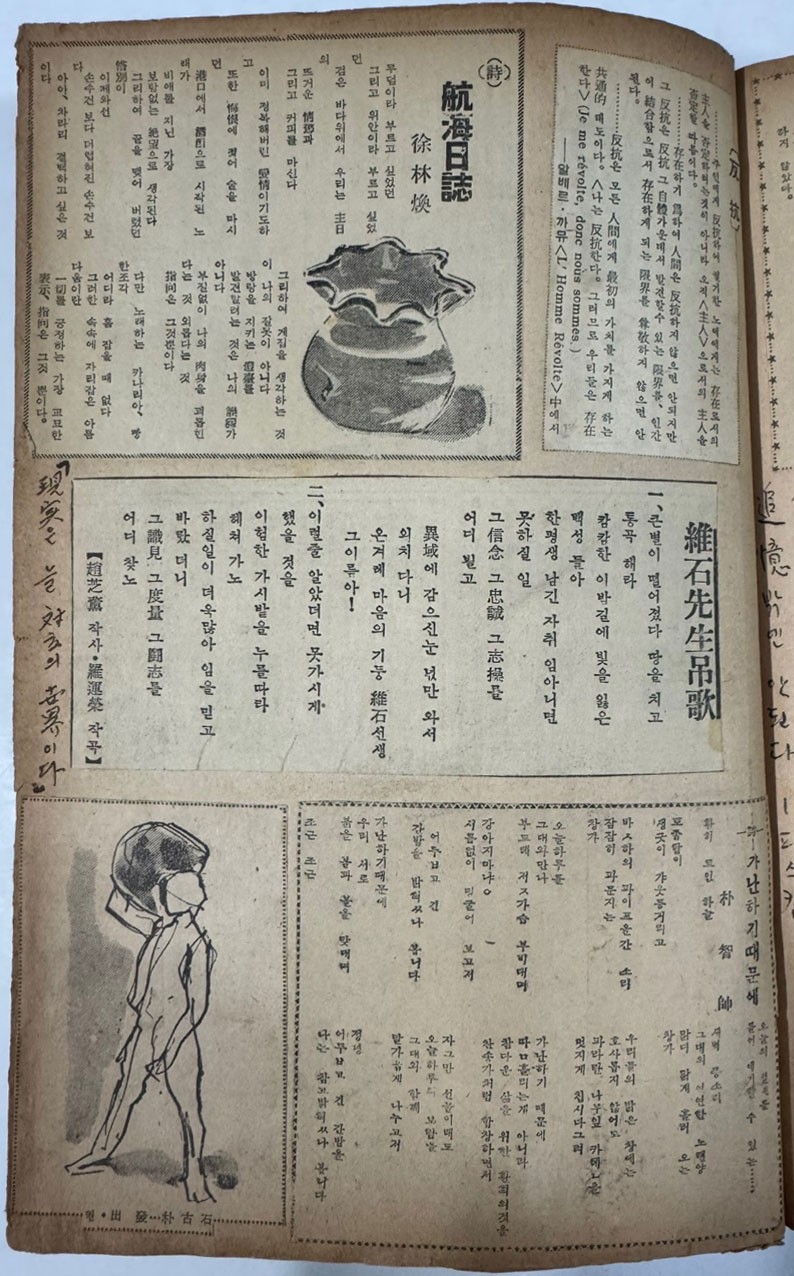 〈反抗〉
主人을 否定하려는것이 아니라 오직 〈主人〉으로서의 主人을
否定할 따름이다。
………存在하기 爲하여 人間은 反抗하지 않으면 안되지만
그 反抗은 反抗 그 自體가운데서 발견할수 있는 限界를、人간
여 結合함으로서 存在하게 되는 限界를 尊敬하지 않으면 안
된다。
………反抗은 모든 人間에게 最初의 가치를 가지게 하는
共通的 때도이다。〈나는 反抗한다。 그러므로 우리들은 存在
한다〉 (Je me révolte, donc nous sommes.)
——알베르・까뮤〈L' Homme Révolte〉中에서
(詩)
航海日誌
徐林煥
무덤이라 부르고 싶었던
그리고 위안이라 부르고 싶었
던
검은 바다위에서 우리는 主日
의
뜨거운 情慾과
그리고 커피를 마신다
이미 정복해버린 愛情이기도하
고
또한 悔恨에 젖어 술을 마시
던
港口에서 시작된 노
래가
비애를 지닌 가장
보람없는 絶望으로 생각된다
그리하여 꿈을 맺어 버렸던
恪別이
이제와선
손수건 보다 더럽혀진 손수건 보
다
아아、차라리 결백하고 싶은 것
이다
그리하여 계집을 생각하는 것
이 나의 잘못이 아니다
방탕을 지키는 燈臺를
발견할려는 것은 나의 誤謬가
아니다
부질없이 나의 肉身을 괴롭힌
다는 것 외롭다는 것
指向은 그것뿐이다
다만 노래하는 카나리아、빵
한조각
어디라 흠 잡을 때 없다
그러한 속속에 자리잡은 아름
다움이란
一切를 긍정하는 가장 고묘한
表示、指向은 그것 뿐이다。
維石先生吊歌
一、큰별이 떨어졌다 땅을 치고
통곡 해라
캄캄한 이밤길에 빛을 잃은
백성 들아
한평생 남긴 자취 임아니면
못하실 일
그信念 그忠誠 그志操를
어디 뵐고
異域에 감으신눈 넋만 와서
외치 다니
온겨레 마음의 기둥 維石선생
그이름아!
二、이럴줄 알았더면 못가시게
했을 것을
이험한 가시밭을 누를따라
헤쳐 가노
하질일이 더욱많아 임을 믿고
바랐 더니
그識見 그度量 그鬪志를
어디 찾노
【趙芝薰 작사・羅運榮 작곡】
「現実은 늘 対立의 世界이다」
追憶 밖엔 안된다
가난하기때문에
朴智帥
환히 트인 하늘
꼬좀달이
생긋이 갸웃둥거리고
잠잠히 파문지는
창가
오늘하루를
그대와만나
강아지마냐ㅇ
서름없이 딩굴어 보고저
어두ㅂ고 긴
간밤을 밝혀ㅆ나 봅니다
가난하기때문에
우리 서로
붉은 볼과 볼을 맞대며
조근 조근
오늘의 행복을
새벽 종소리
그대의 서연한 노래양
맑디 맑게 흘러 오는
창가
우리들의 맑은 창에는
호사롭지 않어도
파라란 나무잎 카텐을
멋지게 칩시다그려
가난하기 때문에
따ㅁ흘리는게 아니라
참다운 삶을 위한 환희의것을
찬송가처럼 합창하면서
자그만 선물이래도
오늘하루의 보람을
그대와 함께
맡가ㅎ게 나누고저
정녕
어두ㅂ고 긴 간밤을
나는 참고밝혀ㅆ나 봅니다
石古朴…發出・펜